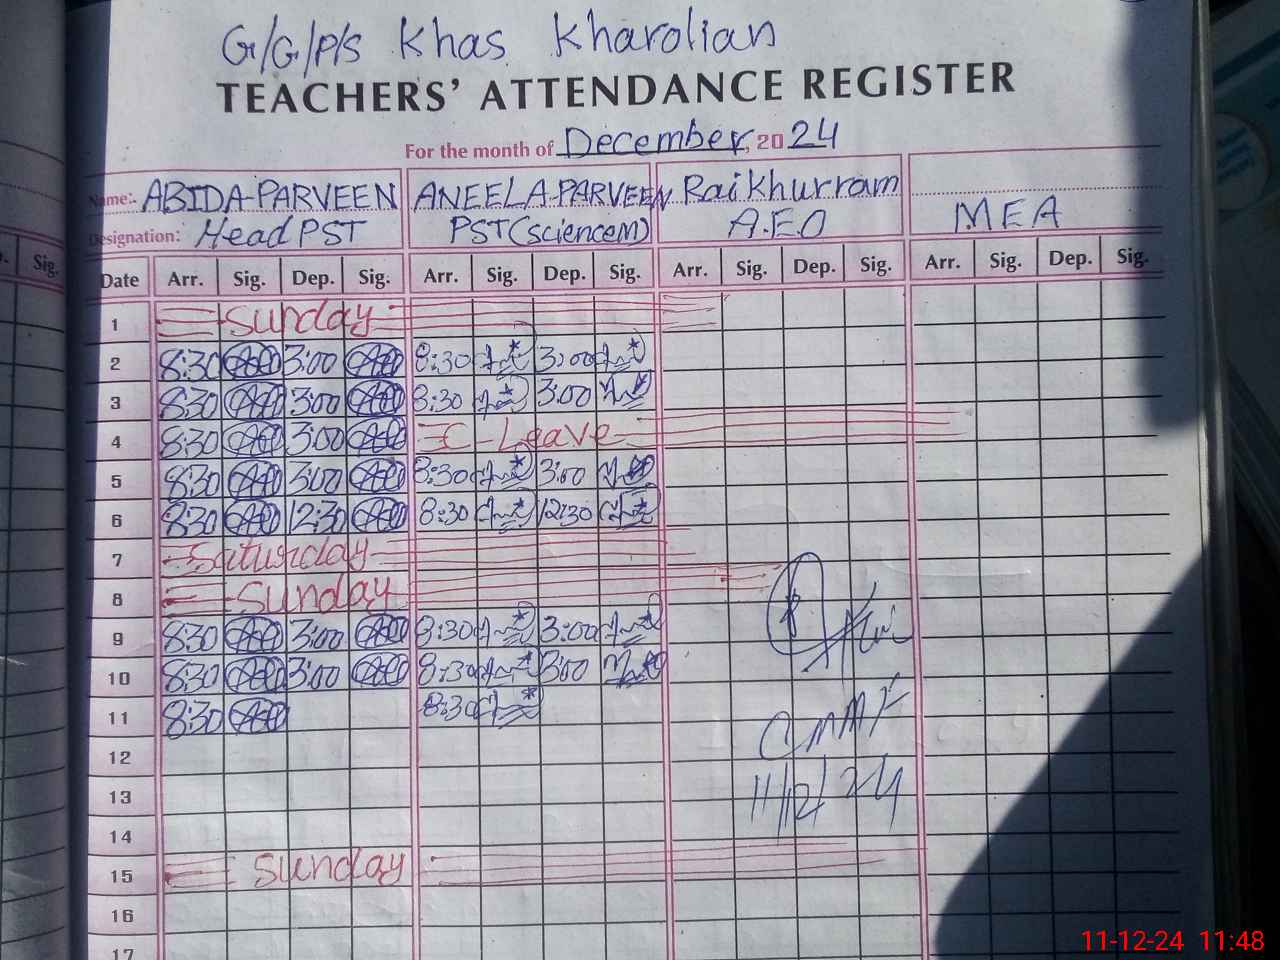 G/G/P/S Khas Kharolian
TEACHERS' ATTENDANCE REGISTER
For the month of December, 2024
Name:- ABIDA-PARVEEN ANEELA-PARVEEN Rai Khurram
Designation: Head PST PST(scienceM) A.E.O MEA
Sig.
Date Arr. Sig. Dep. Sig. Arr. Sig. Dep. Sig. Arr. Sig. Dep. Sig. Arr. Sig. Dep. Sig.
1 Sunday
2 8:30 3:00 8:30 3:00
3 8:30 3:00 8:30 3:00
4 8:30 3:00 C-Leave
5 8:30 3:00 8:30 3:00
6 8:30 12:30 8:30 12:30
7 Saturday
8 Sunday
9 8:30 3:00 8:30 3:00
10 8:30 3:00 8:30 3:00
11 8:30 8:30
12
13 11/12/24
14
15 Sunday
16
17
11-12-24 11:48